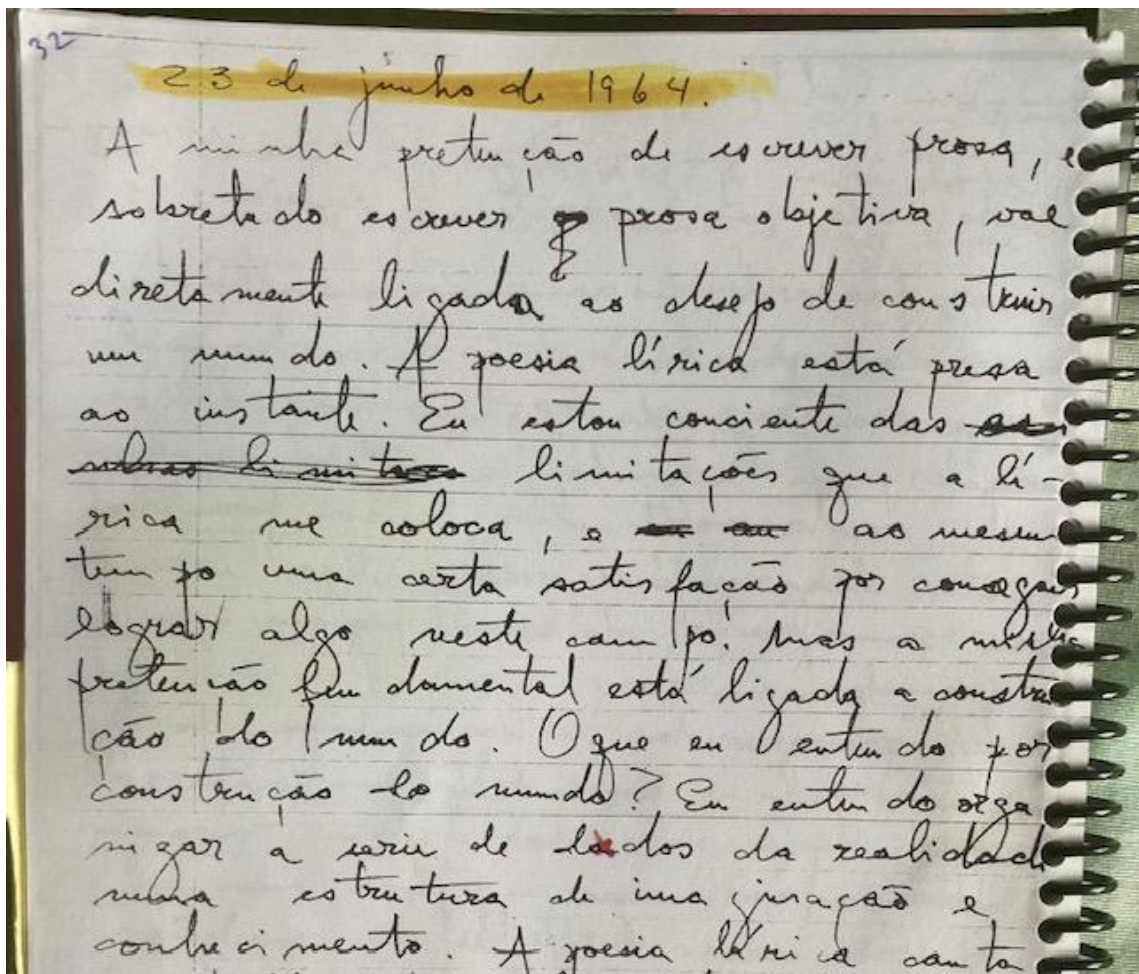 32
23 de junho de 1964.
A minha pretenção de escrever prosa, e
sobretudo escrever prosa objetiva, vae
diretamente ligada ao desejo de construir
um mundo. A poesia lírica está presa
ao instante. Eu estou conciente das
limitações que a lí-
rica me coloca, e ao mesmo
tempo uma certa satisfação por conseguir
lograr algo neste campo. Mas a minha
pretenção fundamental está ligada a constru
ção do mundo. O que eu entendo por
construção do mundo? Eu entendo orga
nizar a serie de dados da realidade
numa estrutura de imaginação e
conhecimento. A poesia lírica canta